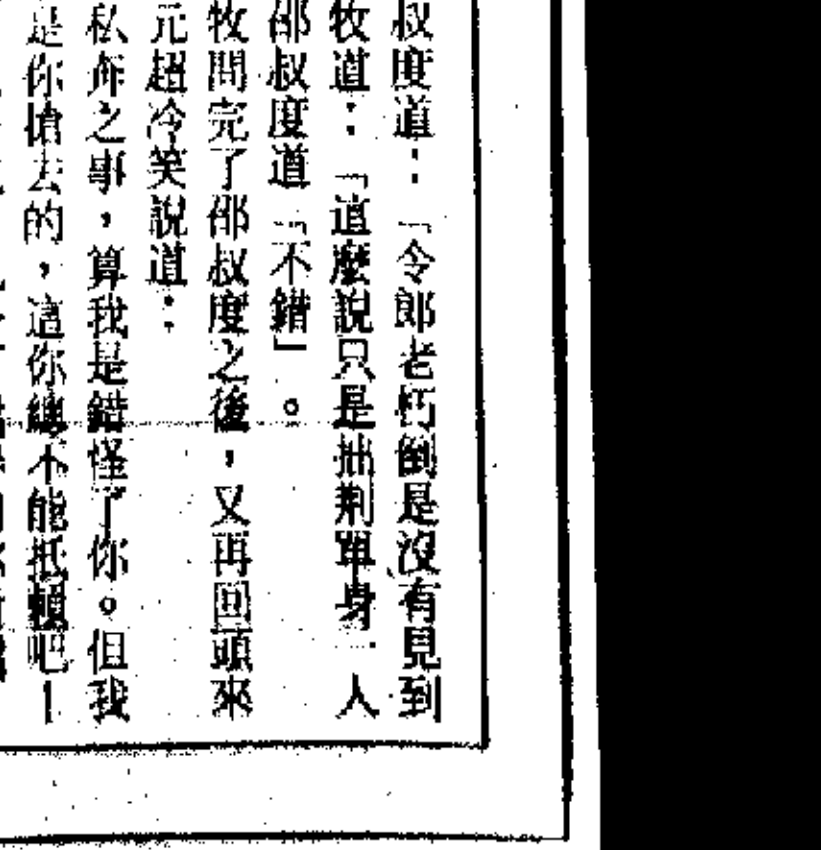 叔度道：「令郎老朽倒是沒有見到
牧道：「這麼說只是拙荆單身一人
邵叔度道「不錯」。
牧問完了邵叔度之後，又再回頭來
元超冷笑說道：
私奔之事，算我是錯怪了你。但我
是你搶去的，這你總不能抵賴吧！